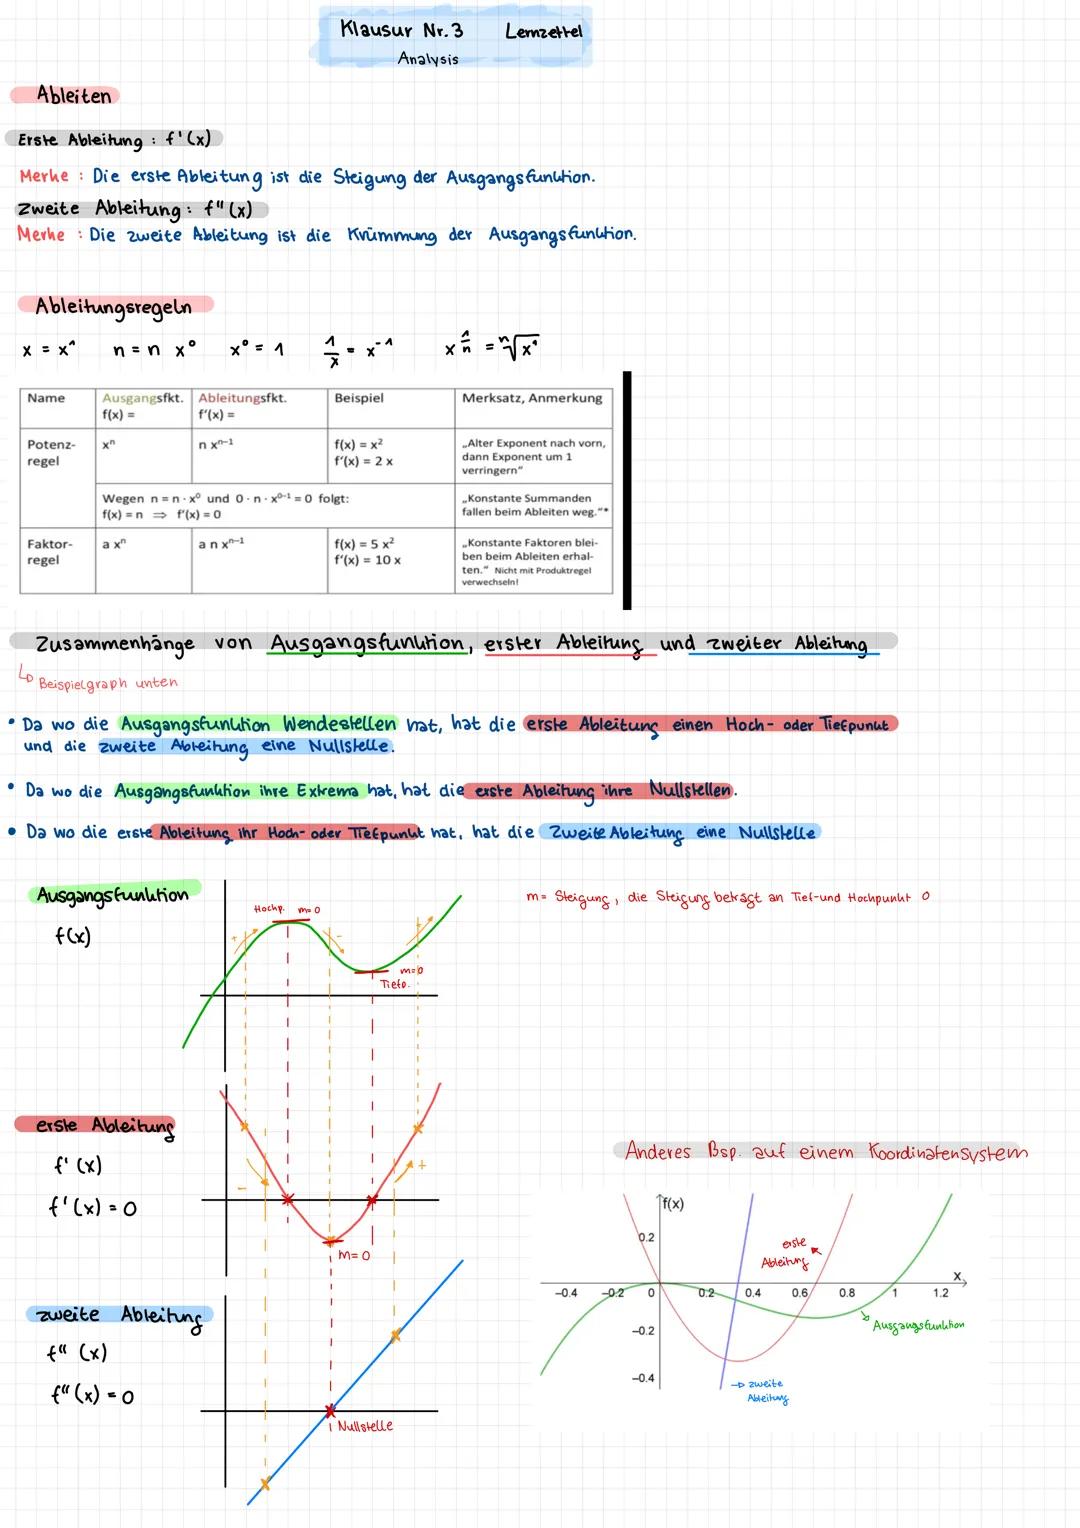 Klausur Nr. 3 Lernzettel
Analysis
Ableiten
Erste Ableitung : f'(x)
Merke : Die erste Ableitung ist die Steigung der Ausgangsfunktion.
Zweite Ableitung : f"(x)
Merke : Die zweite Ableitung ist die Krümmung der Ausgangsfunktion.
Ableitungsregeln
x = x¹ n = n x⁰ x⁰ = 1 1/x = x⁻¹ x^(1/n) = ⁿ√x¹
Name Ausgangsfkt. f(x) = Ableitungsfkt. f'(x) = Beispiel Merksatz, Anmerkung
Potenz-
regel
xⁿ
n xⁿ⁻¹
f(x) = x²
f'(x) = 2 x
„Alter Exponent nach vorn,
dann Exponent um 1
verringern"
Wegen n = n · x⁰ und 0 · n · x⁰⁻¹ = 0 folgt:
f(x) = n ⇒ f'(x) = 0
„Konstante Summanden
fallen beim Ableiten weg."*
Faktor-
regel
a xⁿ
a n xⁿ⁻¹
f(x) = 5 x²
f'(x) = 10 x
„Konstante Faktoren blei-
ben beim Ableiten erhal-
ten." Nicht mit Produktregel
verwechseln!
Zusammenhänge von Ausgangsfunktion, erster Ableitung und zweiter Ableitung
↳ Beispielgraph unten
• Da wo die Ausgangsfunktion Wendestellen hat, hat die erste Ableitung einen Hoch- oder Tiefpunkt
und die zweite Ableitung eine Nullstelle.
• Da wo die Ausgangsfunktion ihre Extrema hat, hat die erste Ableitung ihre Nullstellen.
• Da wo die erste Ableitung ihr Hoch- oder Tiefpunkt hat, hat die Zweite Ableitung eine Nullstelle
Ausgangsfunktion
f(x)
Hochp. m=0
+
-
+
m=0
Tiefp.
m= Steigung, die Steigung beträgt an Tief- und Hochpunkt 0
erste Ableitung
f' (x)
f'(x) = 0
-
+
m=0
zweite Ableitung
f" (x)
f"(x) = 0
Nullstelle
Anderes Bsp. auf einem Koordinatensystem
f(x)
0.2
erste
Ableitung
x
-0.4 -0.2 0 0.2 0.4 0.6 0.8 1 1.2
-0.2
Ausgangsfunktion
-0.4
→ zweite
Ableitung